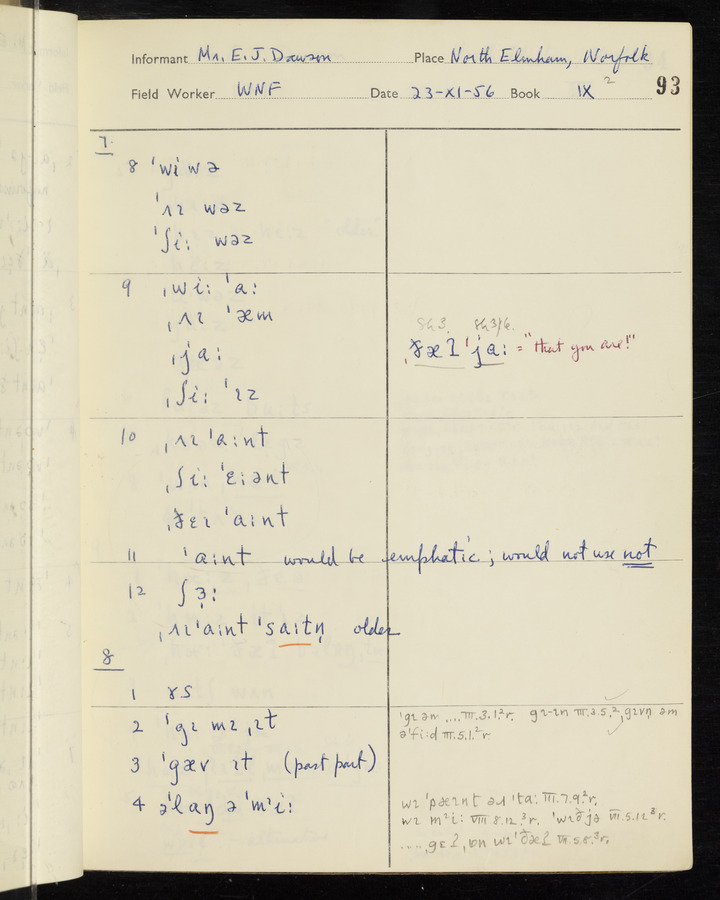 Informant Mr. E. J. Dawson Place North Elmham, Norfolk
Field Worker WNF Date 23-XI-56 Book IX² 93
7.
8 ˈwi wə
ˈʌɪ wəz
ˈʃi: wəz
9 ˌwi: ˈa:
ˌʌɪ ˈæm
ˌja:
ˌʃi: ˈɪz
8h3. 8h3/6.
ˌðæʔ ˈja: = "that you are!"
10 ˌʌɪ ˈa:nt
ˌʃi: ˈɛ:ənt
ˌðɛɪ ˈa:nt
11 ˈa:nt would be emphatic; would not use not
12 ʃɜ̣:
ˌʌɪ ˈa:nt ˈsa:tn̩ older
8
1 ɤs
2 ˈgɪ mɪ ˌɪt
3 ˈgæv ɪt (past part)
4 əˈlaŋ ə ˈmˈi:
ˈgɪ ən ... III.3.1.²r. gɪ-ɪn III.3.5.², gɪvn̩ əm
əˈfi:d III.5.1.²r
wɪ ˈpæɪnt ən ˈta: III.7.9.²r.
wɪ mˈi: VIII 8.12.³r. ˈwɪð jə VI.5.12³r.
...., gɛʔ, ɒn wɪˈðæʔ VII.5.8.³r.